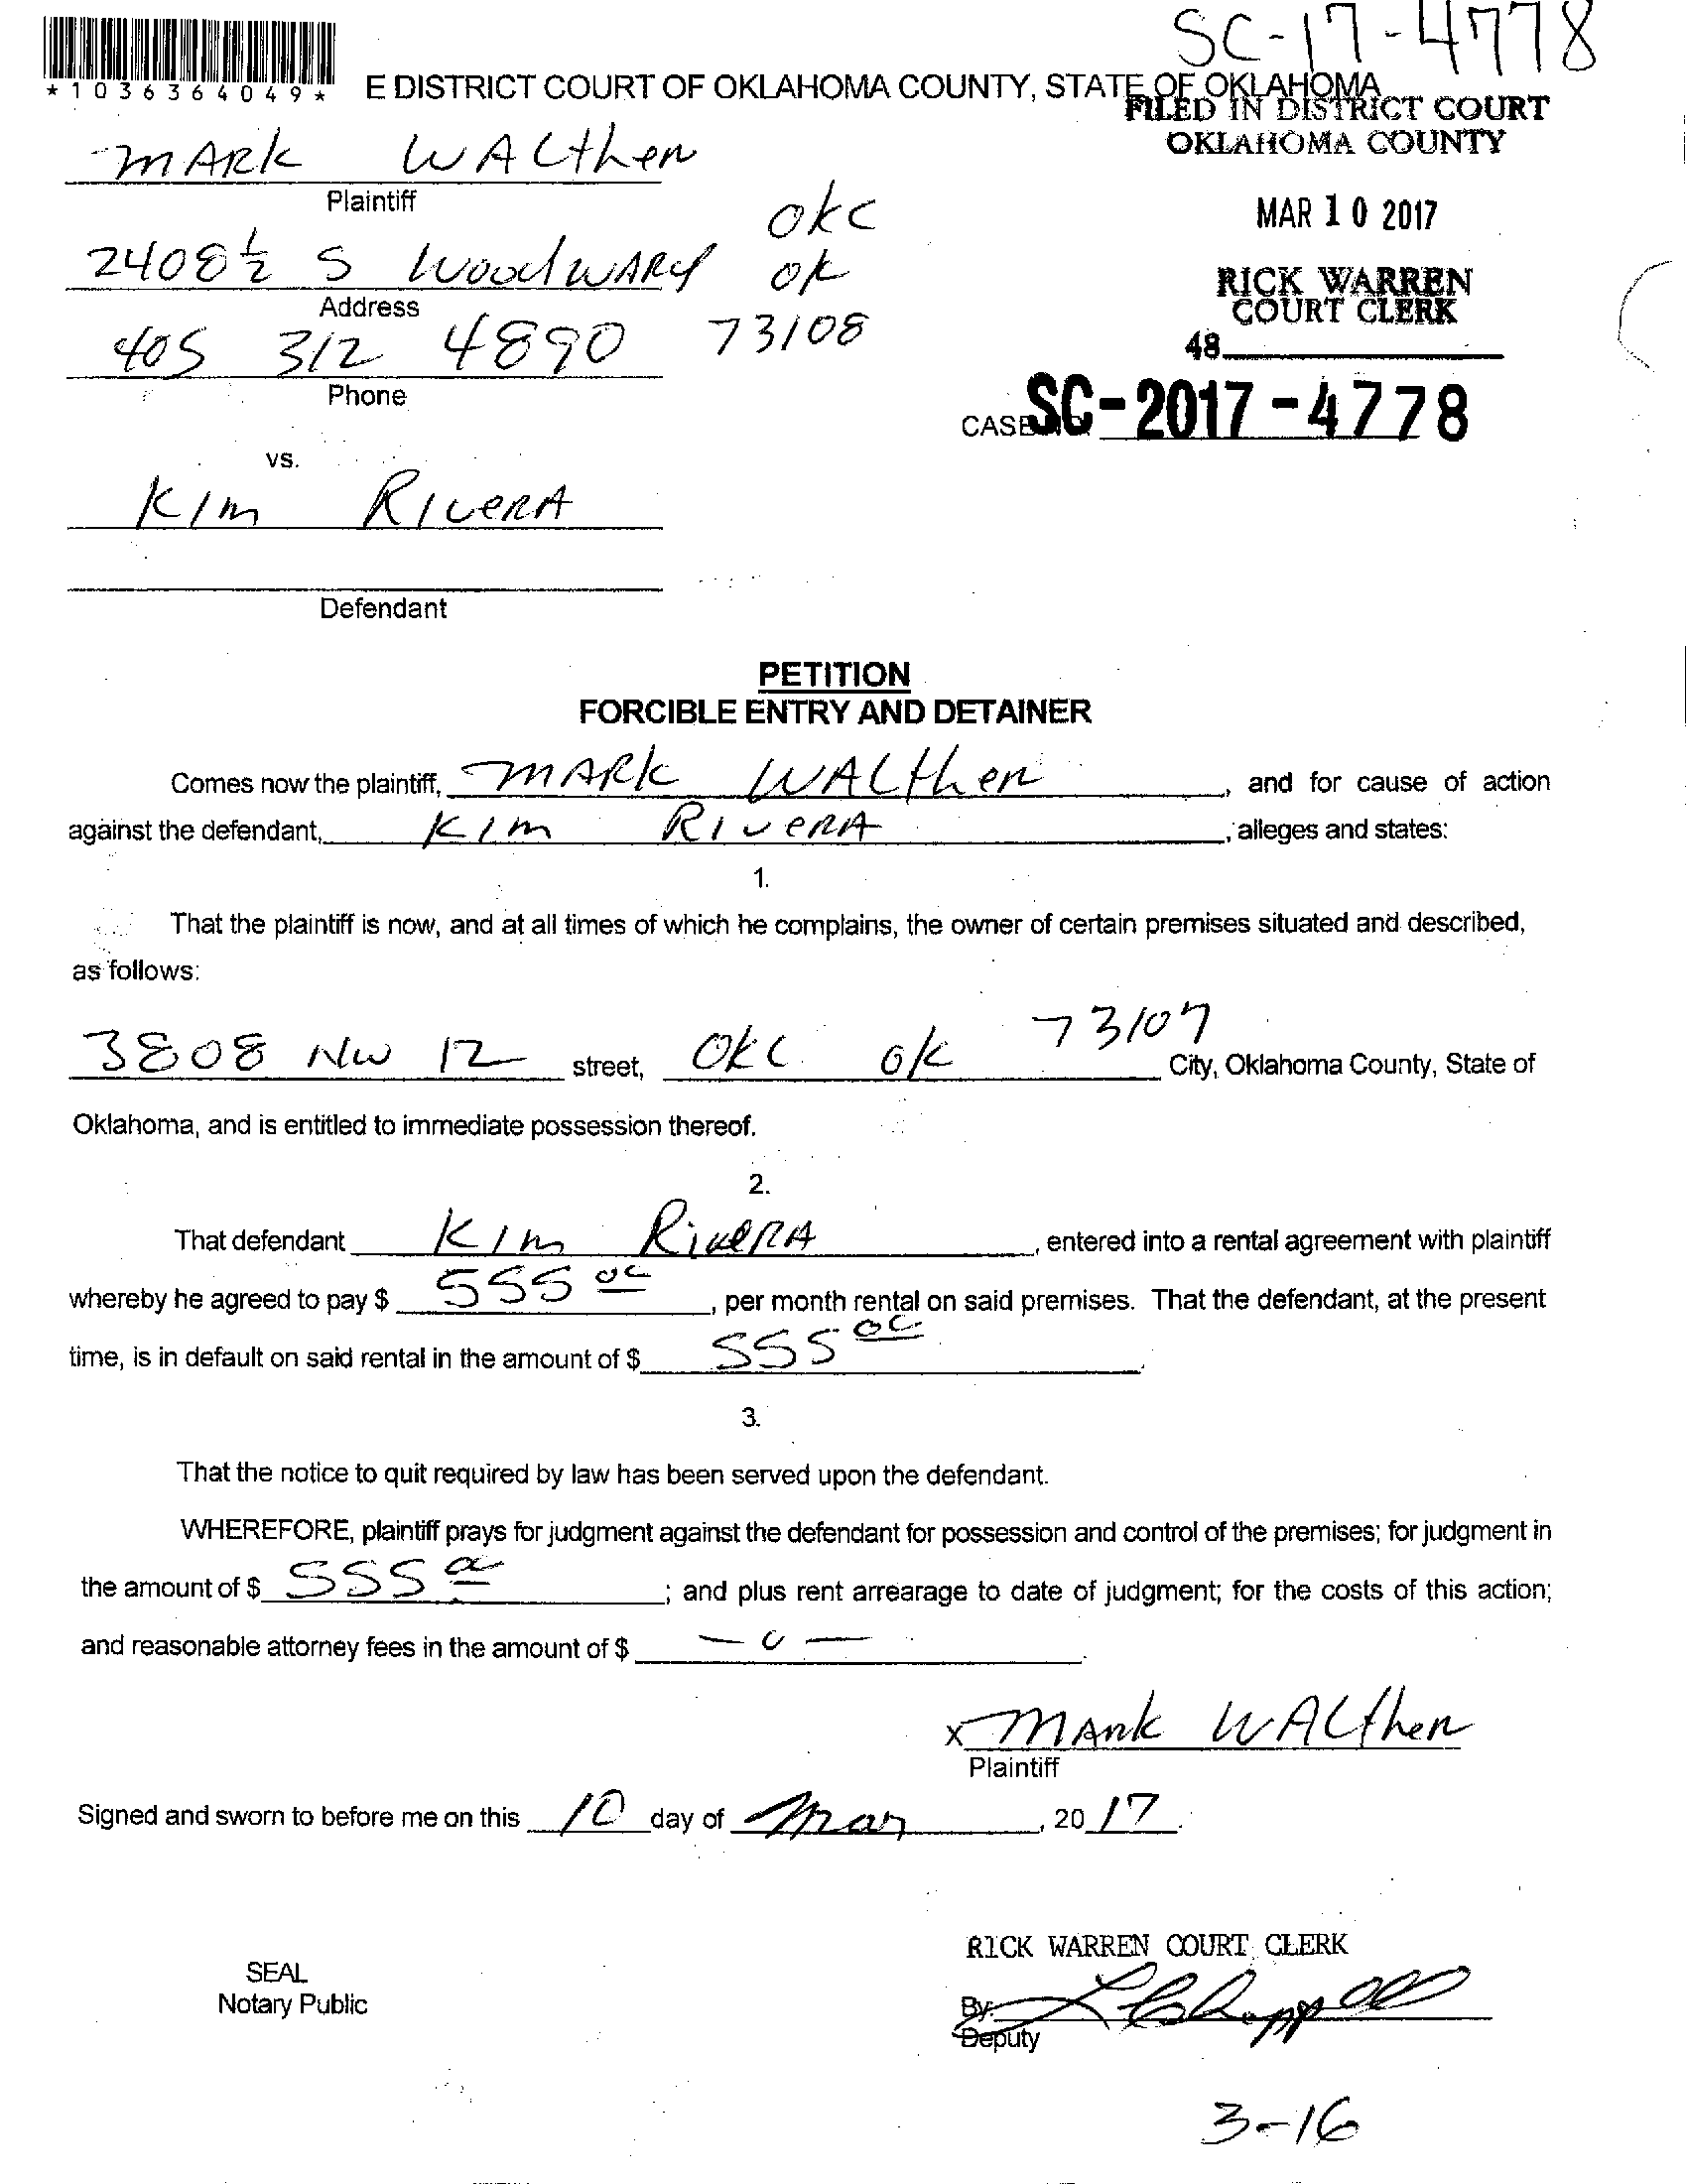 SC-17-4778
*1036364049*
E DISTRICT COURT OF OKLAHOMA COUNTY, STATE OF OKLAHOMA
FILED IN DISTRICT COURT
OKLAHOMA COUNTY
MARK WALther
Plaintiff
MAR 10 2017
2408 ½ S WoodWARd OKC OK
Address
RICK WARREN
COURT CLERK
405 312 4890 73108
Phone
48
CASE SC-2017-4778
vs.
KIM RIVERA
Defendant
PETITION
FORCIBLE ENTRY AND DETAINER
Comes now the plaintiff, MARK WALther, and for cause of action
against the defendant, KIM RIVERA, alleges and states:
1.
That the plaintiff is now, and at all times of which he complains, the owner of certain premises situated and described,
as follows:
3808 NW 12 street, OKC OK 73107 City, Oklahoma County, State of
Oklahoma, and is entitled to immediate possession thereof.
2.
That defendant KIM RiveRA, entered into a rental agreement with plaintiff
whereby he agreed to pay $ 555 00, per month rental on said premises. That the defendant, at the present
time, is in default on said rental in the amount of $ 555 00.
3.
That the notice to quit required by law has been served upon the defendant.
WHEREFORE, plaintiff prays for judgment against the defendant for possession and control of the premises; for judgment in
the amount of $ 555 00; and plus rent arrearage to date of judgment; for the costs of this action;
and reasonable attorney fees in the amount of $ -0-.
x MARK WALther
Plaintiff
Signed and sworn to before me on this 10 day of Mar, 2017.
RICK WARREN COURT CLERK
SEAL
Notary Public
By:
Deputy
3-16